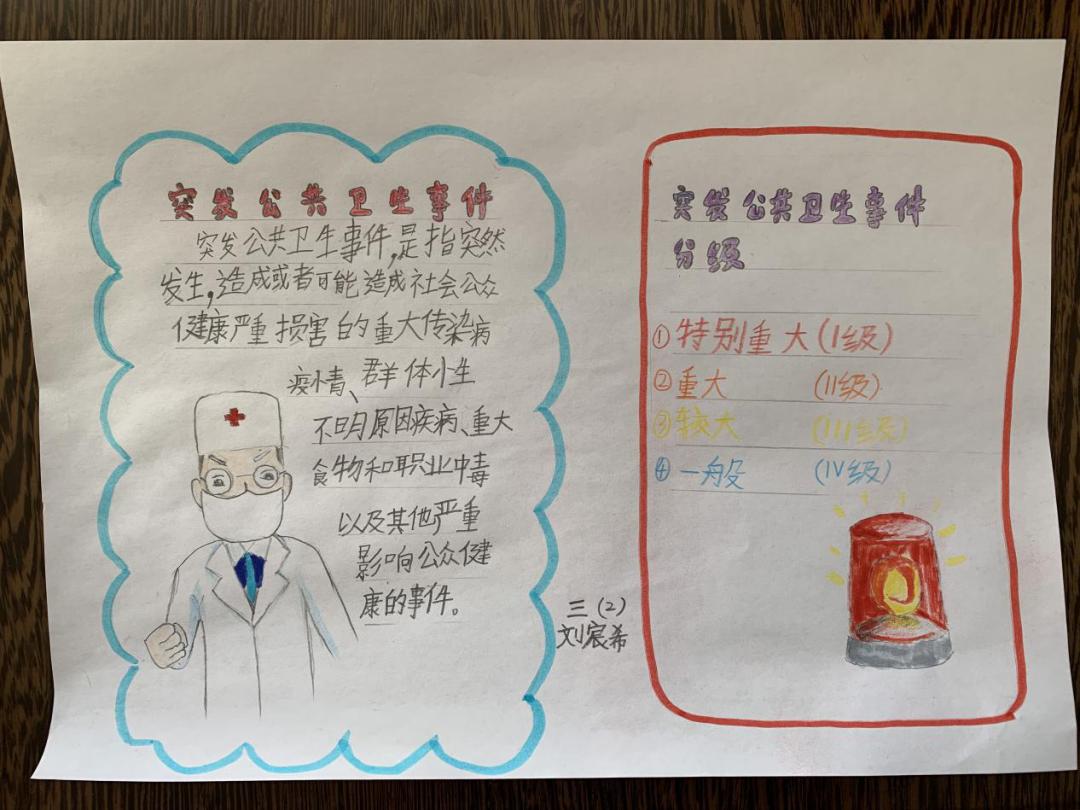 突发公共卫生事件
突发公共卫生事件,是指突然
发生,造成或者可能造成社会公众
健康严重损害的重大传染病
疫情、群体小生
不明原因疾病、重大
食物和职业中毒
以及其他严重
影响公众健
康的事件。
三(2)
刘宸希
突发公共卫生事件
分级
①特别重大(I级)
②重大 (II级)
③较大 (III级)
④一般 (IV级)